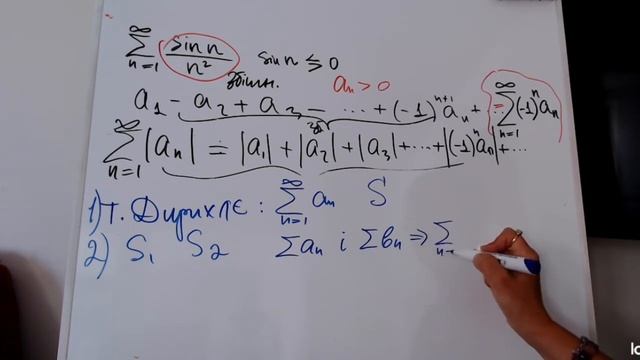 ∞ ∑ n=1 sin n / n² sin n ≶ 0
Збіжн. aₙ > 0
a₁ - a₂ + a₃ - ... + (-1)ⁿ⁺¹ aₙ + ... = ∞ ∑ n=1 (-1)ⁿ aₙ
∞ ∑ n=1 |aₙ| = |a₁| + |a₂| + |a₃| + ... + |(-1)ⁿ aₙ| + ...
1) т. Дирихлє : ∞ ∑ n=1 aₙ S
2) S₁ S₂ ∑aₙ і ∑вₙ ⇒ ∑ n=